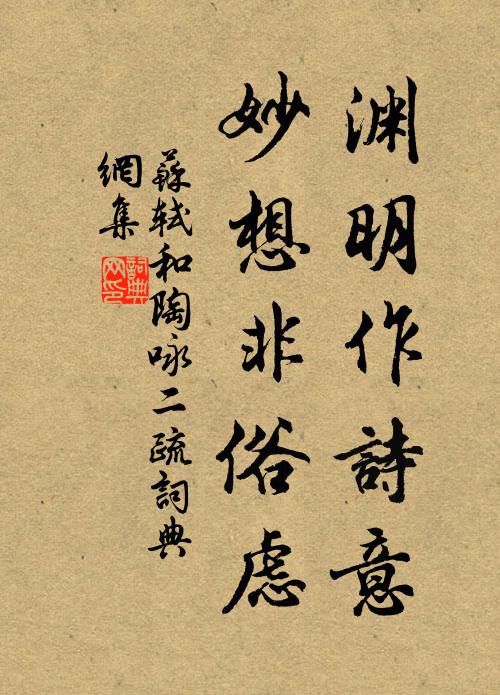 渊明作詩意
妙想非俗虑
蘇轼和陶咏二疏詞典
網集
詞典
网印